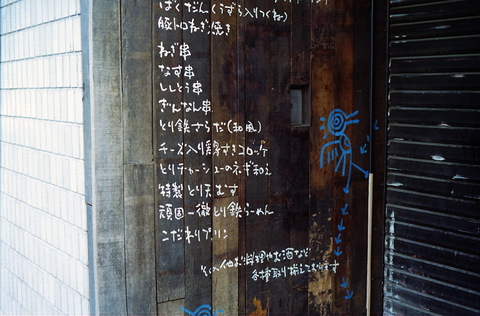 ばくだん(うずら入りつくね)
豚トロねぎ焼き
ねぎ串
なす串
ししとう串
ぎんなん串
とり鉄さらだ(和風)
チーズ入り鶏すきコロッケ
とりチャーシューのネギ和え
特製とり天むす
頑固一徹とり鉄らーめん
こだわりプリン
その他お料理やお酒など
各種取り揃えております